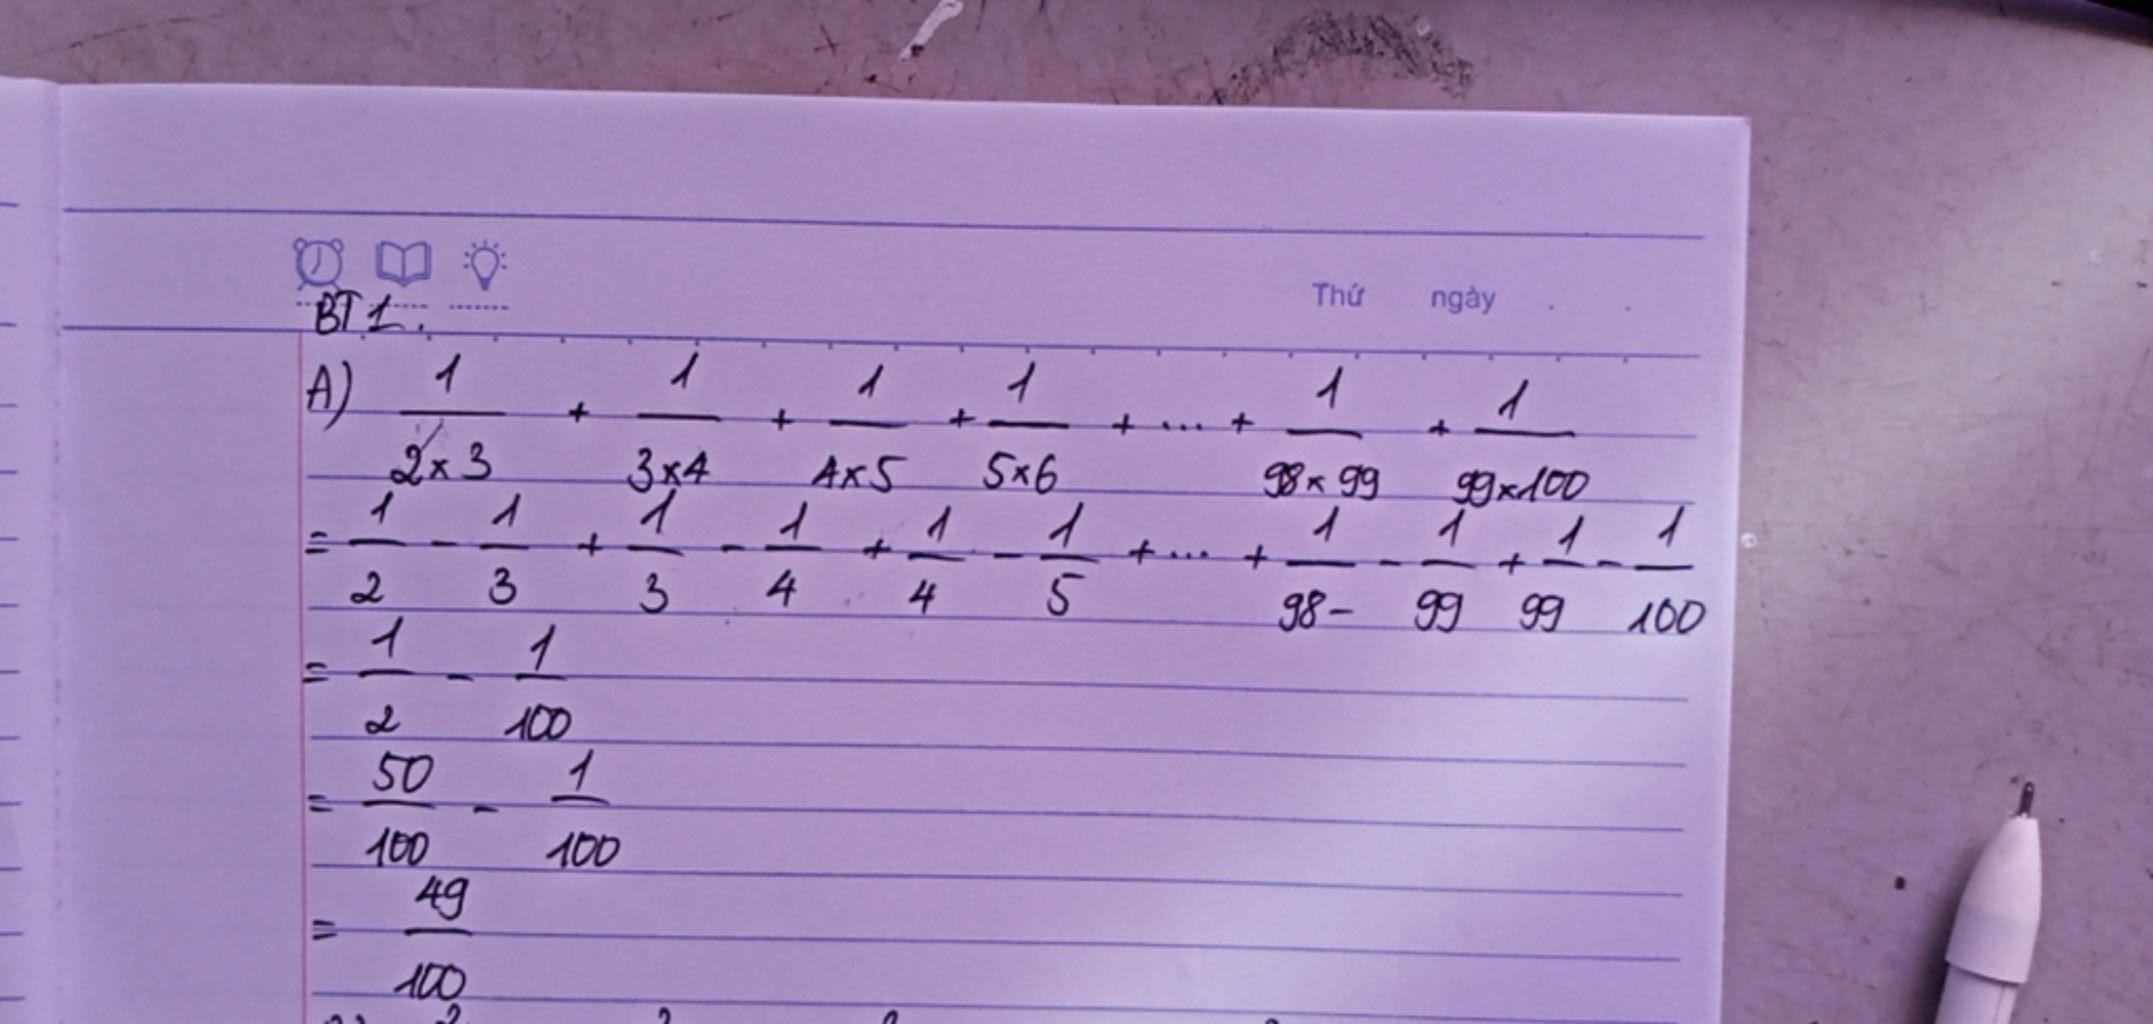 Thứ ngày . .
BT 1.
A) 1/2×3 + 1/3×4 + 1/4×5 + 1/5×6 + ... + 1/98×99 + 1/99×100
= 1/2 - 1/3 + 1/3 - 1/4 + 1/4 - 1/5 + ... + 1/98- - 1/99 + 1/99 - 1/100
= 1/2 - 1/100
= 50/100 - 1/100
= 49/100